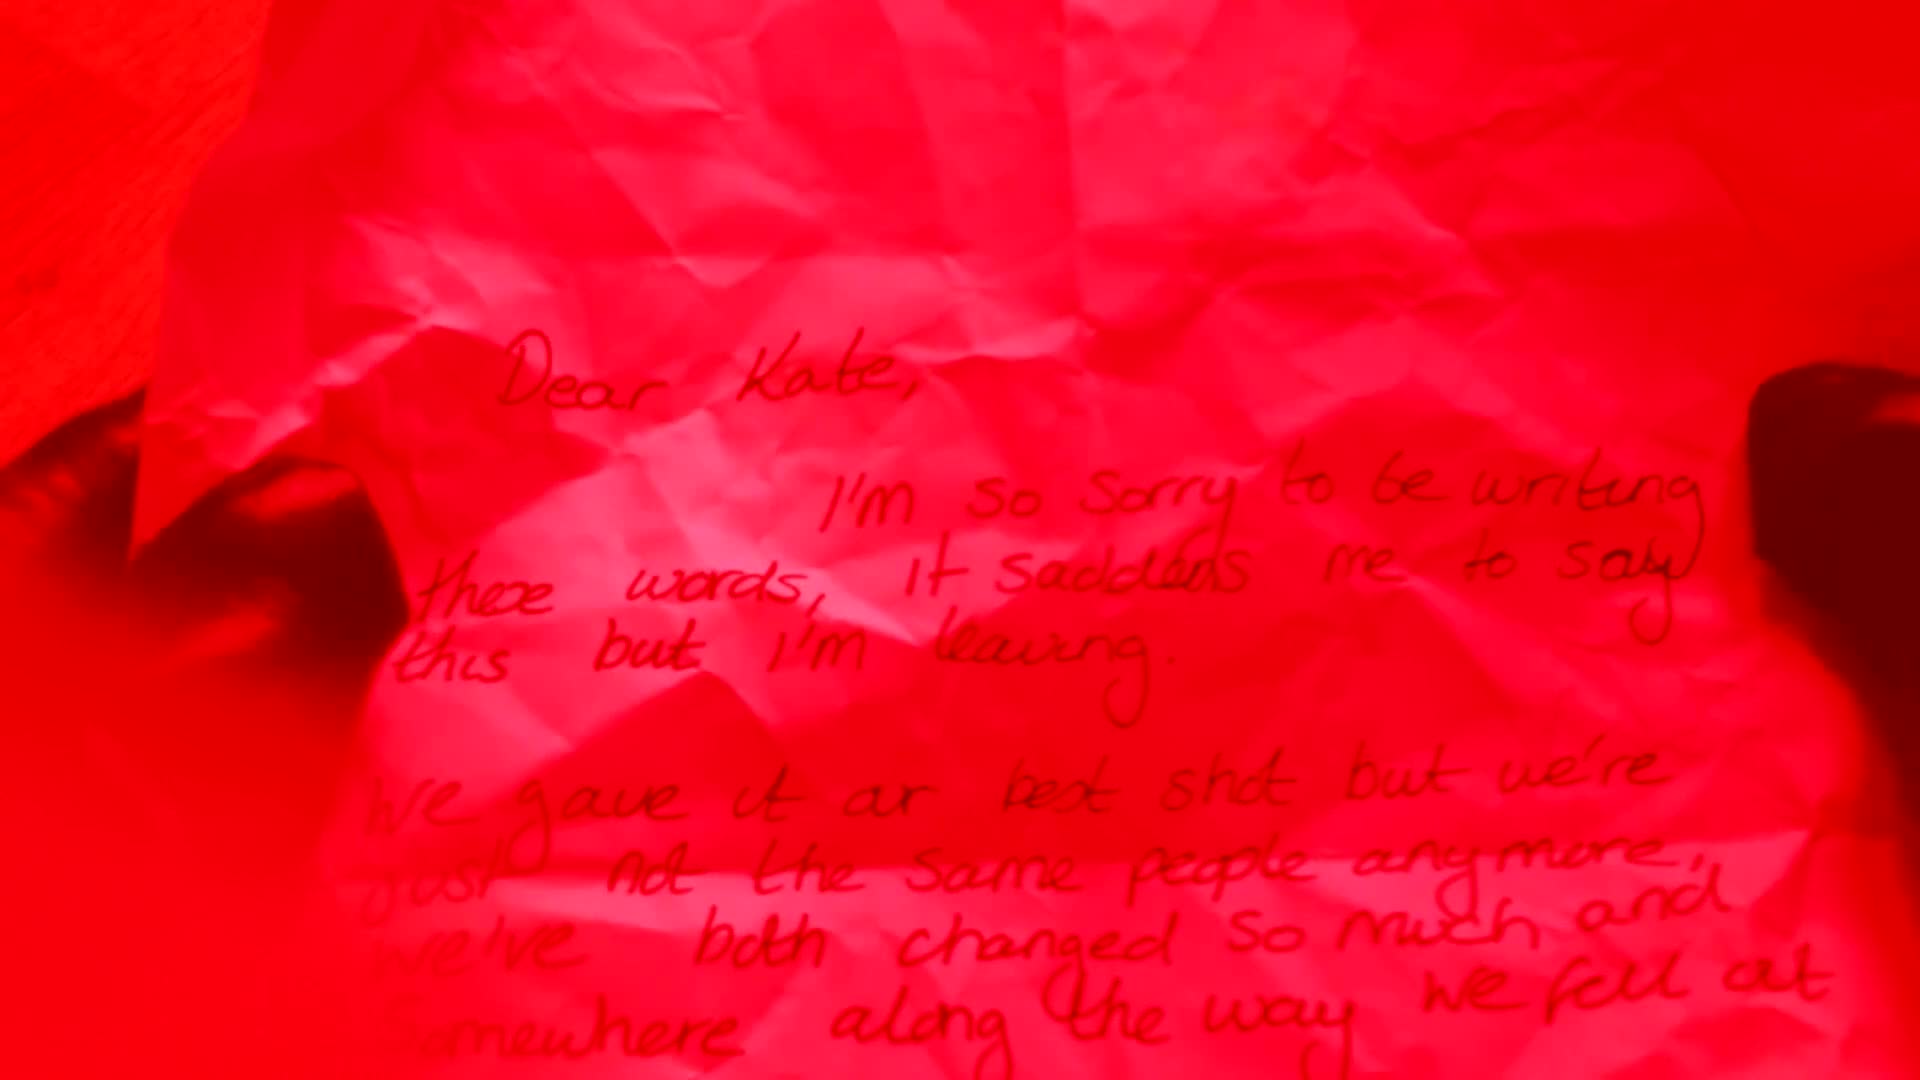 Dear Kate,
I'm so sorry to be writing
these words, it saddens me to say
this but I'm leaving.
We gave it ar best shot but we're
just not the same people anymore,
we've both changed so much and
Somewhere along the way we fell out